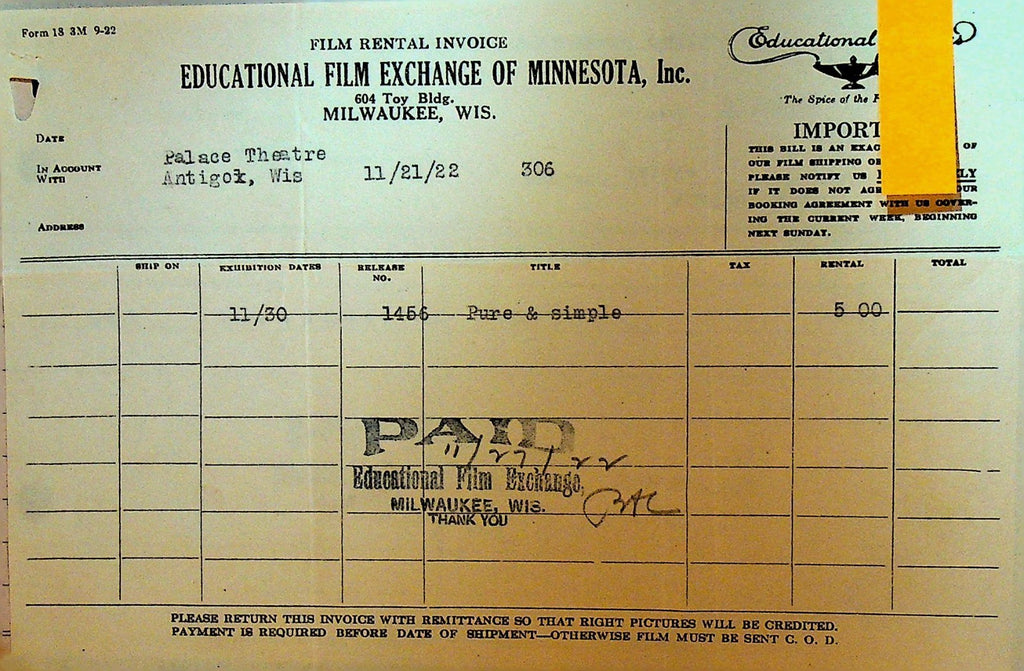 Form 18 3M 9-22
FILM RENTAL INVOICE
EDUCATIONAL FILM EXCHANGE OF MINNESOTA, Inc.
604 Toy Bldg.
MILWAUKEE, WIS.
Educational
The Spice of the
DATE
IN ACCOUNT WITH
Palace Theatre
Antigok, Wis 11/21/22 306
ADDRESS
THIS BILL IS AN OF
OUR FILM SHIPPING
PLEASE NOTIFY US
IF IT DOES NOT
BOOKING AGREEMENT WITH US COVER-
ING THE CURRENT WEEK, BEGINNING
NEXT SUNDAY.
SHIP ON EXHIBITION DATES RELEASE NO. TITLE TAX RENTAL TOTAL
11/30 1456 Pure & simple 5 00
PAID
11/27/22
Educational Film Exchange,
MILWAUKEE, WIS.
THANK YOU
PLEASE RETURN THIS INVOICE WITH REMITTANCE SO THAT RIGHT PICTURES WILL BE CREDITED.
PAYMENT IS REQUIRED BEFORE DATE OF SHIPMENT—OTHERWISE FILM MUST BE SENT C. O. D.